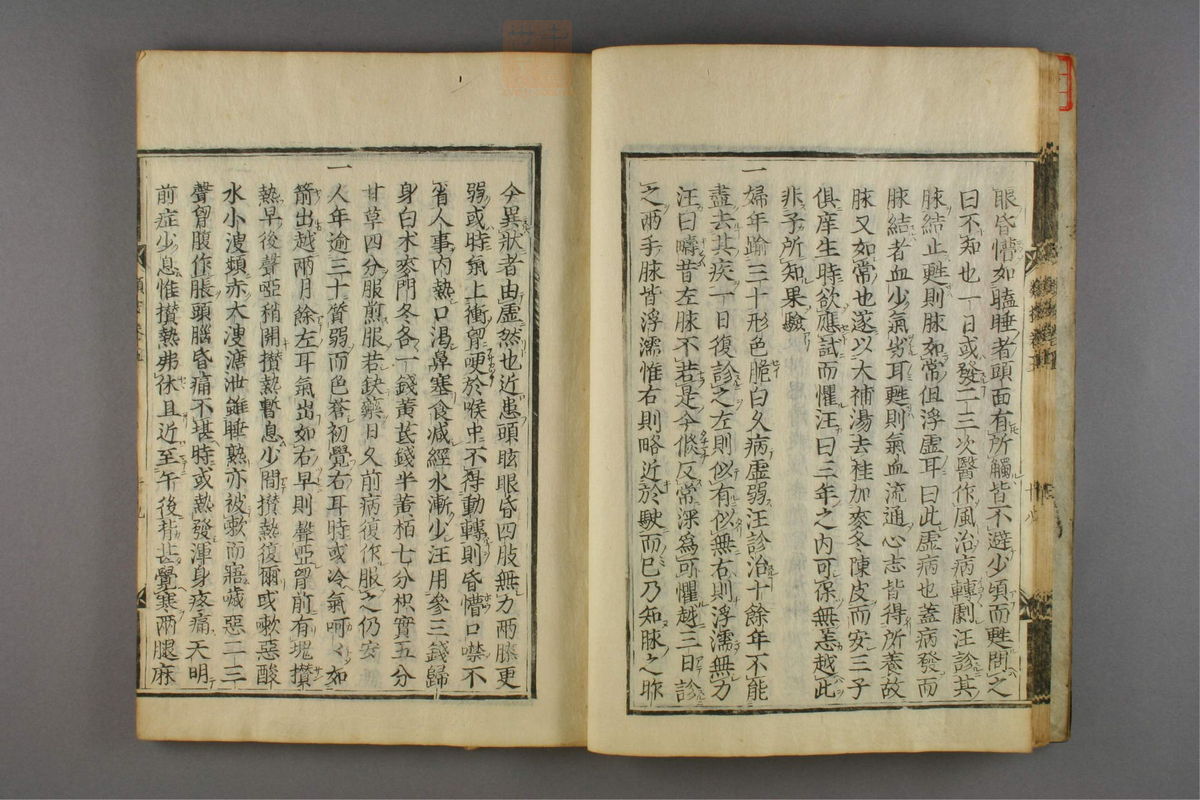 眼昏懵如瞌睡者頭面有所觸皆不避少頃而甦問之
曰不知也一日或發二三次醫作風治病轉劇汪診其
脉結止甦則脉如常但浮虛耳曰此虛病也蓋病發而
脉結者血少氣劣耳甦則氣血流通心志皆得所養故
脉又如常也遂以大補湯去桂加麥冬陳皮而安三子
俱庠生時欲應試而懼汪曰三年之内可保無恙越此
非子所知果驗
一婦年踰三十形色脆白久病虛弱汪診治十餘年不能
盡去其疾一日復診之左則似有似無右則浮濡無力
汪曰疇昔左脉不若是今倐反常深爲可懼越三日診
之兩手脉皆浮濡惟右則略近於駃而已乃知脉之昨
今異狀者由虛然也近患頭眩眼昏四肢無力兩膝更
弱或時氣上衝胷哽於喉中不得動轉則昏懵口噤不
省人事内熱口渴鼻塞食减經水漸少汪用參三錢歸
身白术麥門冬各一錢黃芪錢半黃栢七分枳實五分
甘草四分服煎服若缺藥日久前病復作服之仍安
一人年逾三十質弱而色蒼初覺右耳時或冷氣呵呵如
箭出越兩月餘左耳氣出如右早則聲啞胷前有塊攅
熱早後聲啞稍開攅熱暫息少間攅熱復爾或嗽惡酸
水小溲頻赤大溲溏泄雖睡熟亦被嗽而寤嘰惡二三
聲胷腹作脹頭腦昏痛不堪時或熱發渾身疼痛天明
前症少息惟攅熱弗休且近至午後背甚覺寒兩腿麻